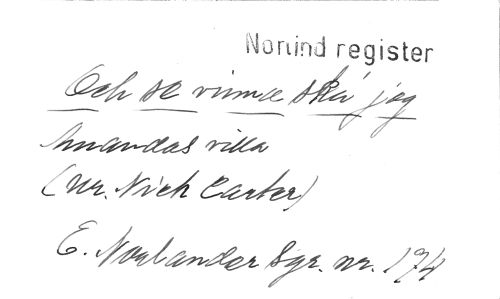 Norlind register
Och se vinna ska' jag
Amandas villa
(ur. Nick Carter)
E. Norlander Sgr. nr. 174